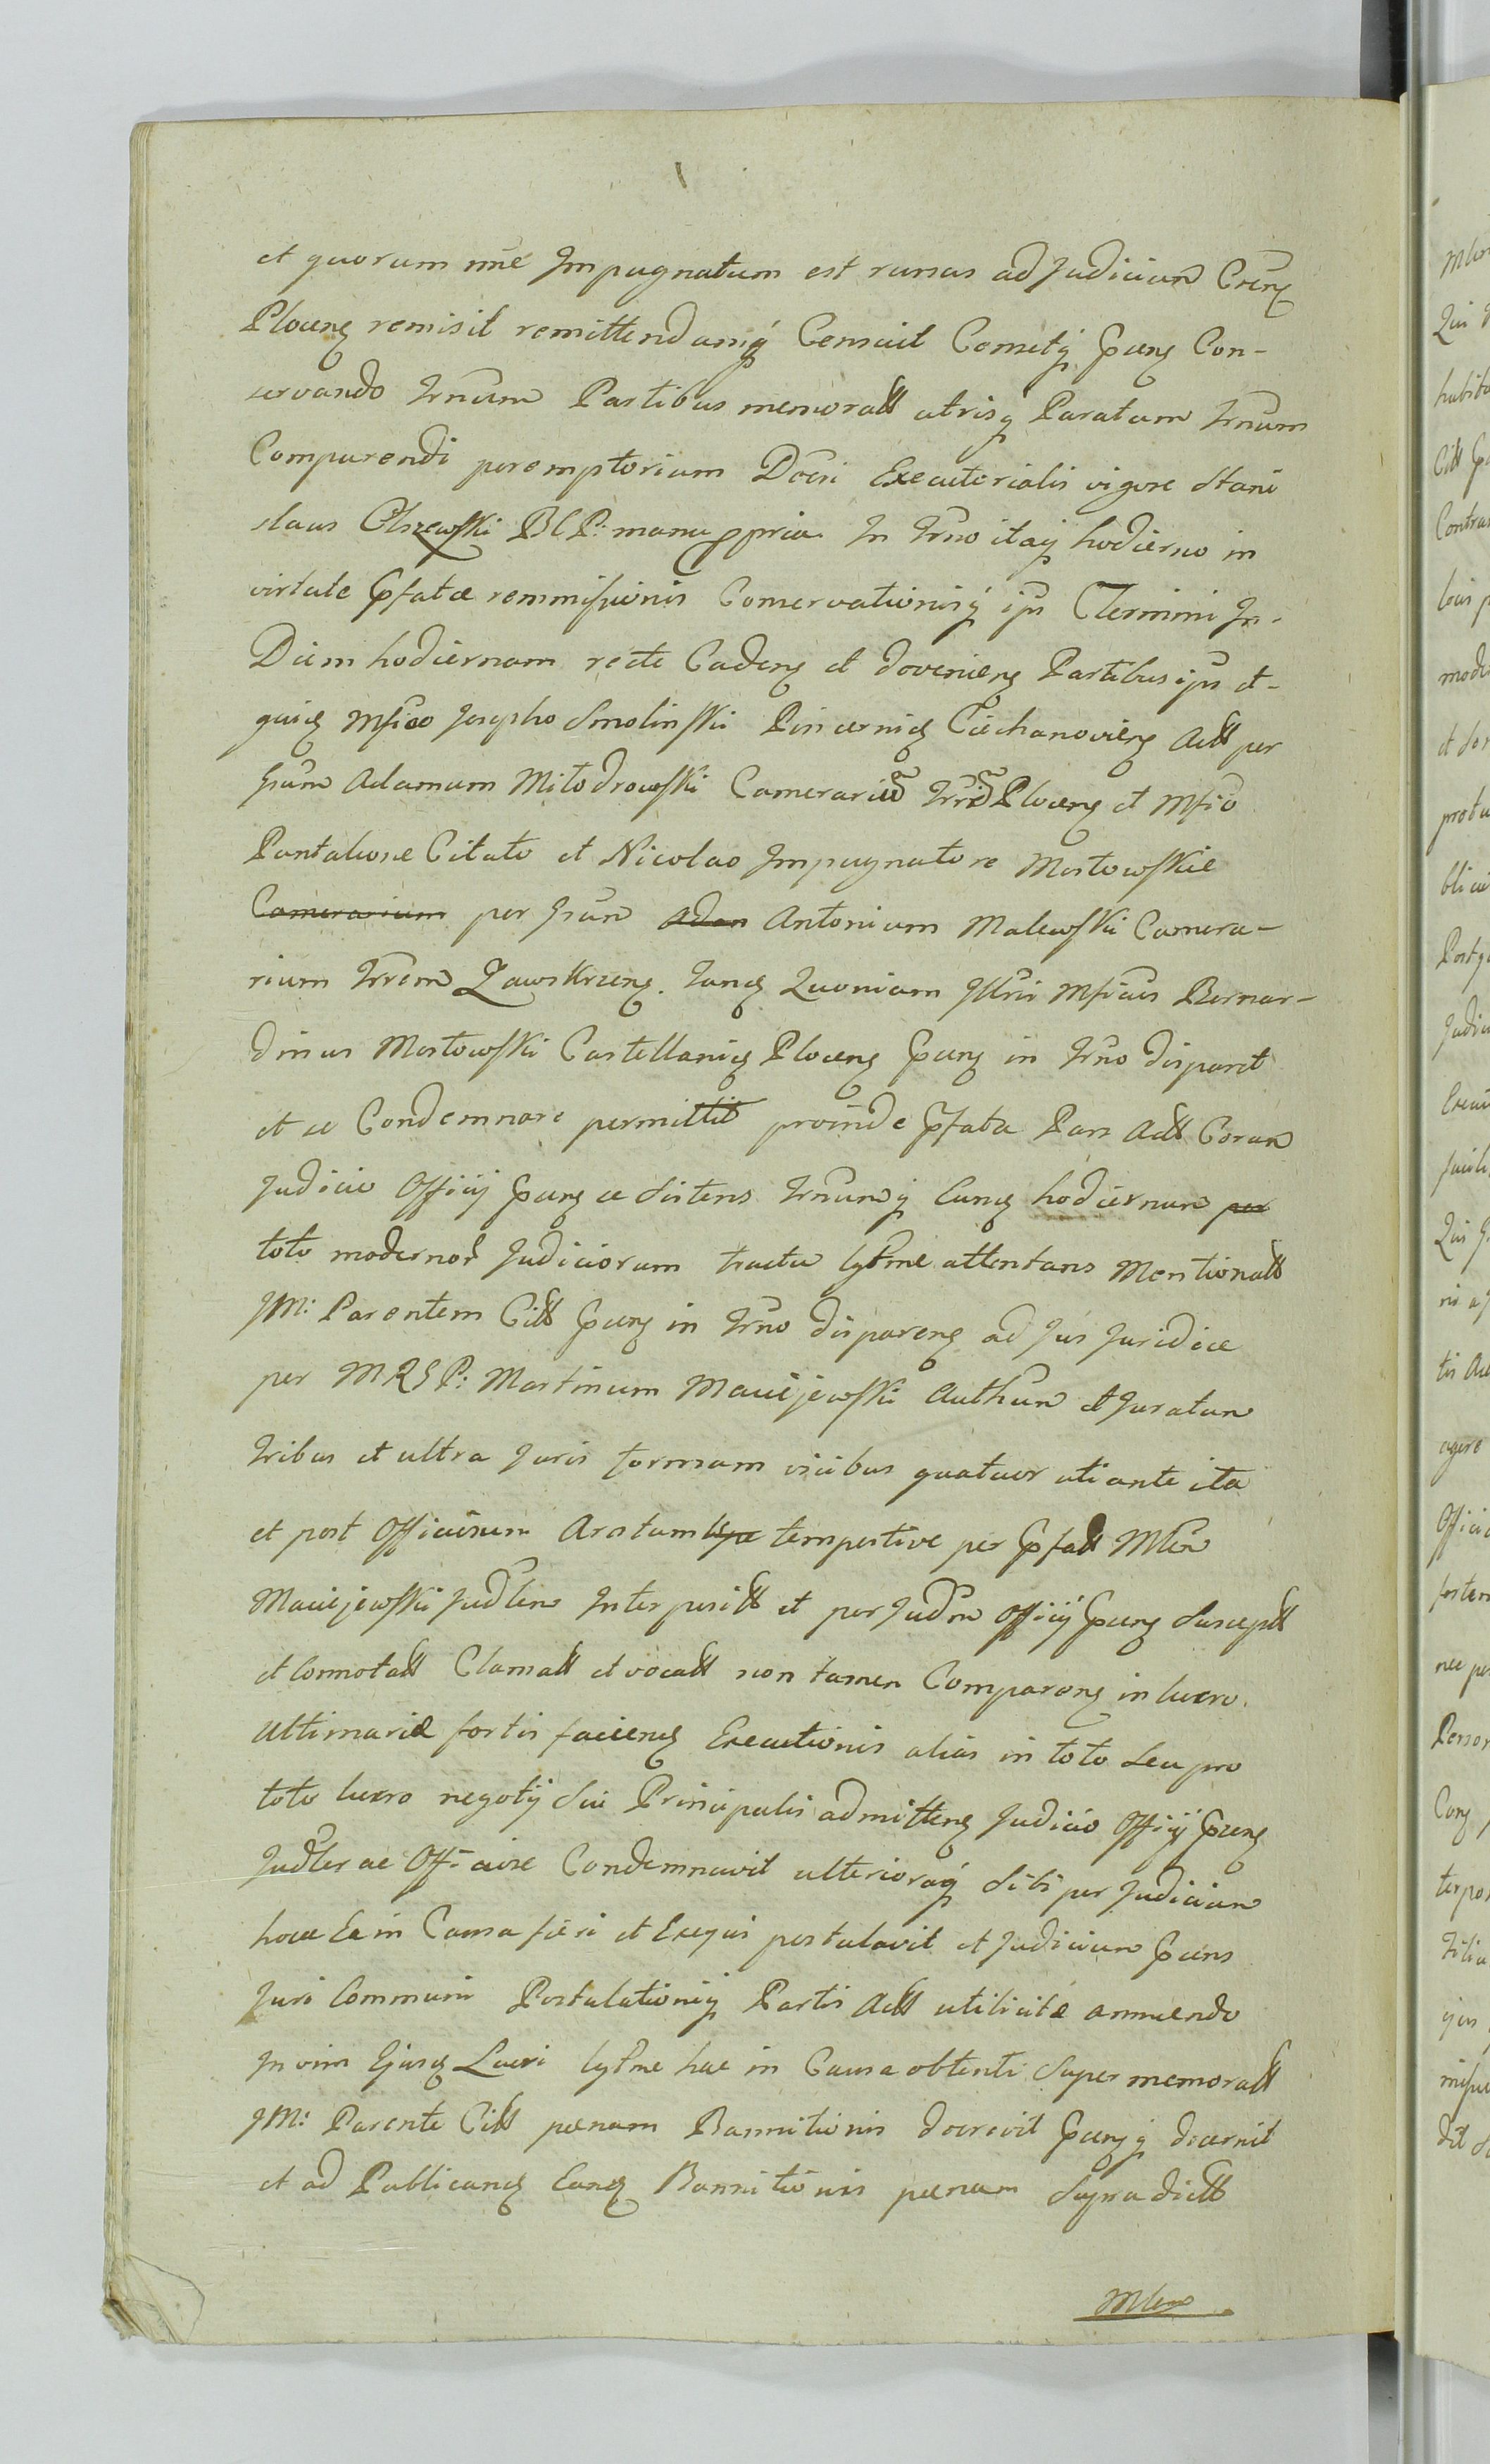 et quorum nne Impugnatum est rursus ad Judicium Crens
Plocens remisit remittendamq Censuit Cometq Ppens Con-
servando Trnum Partibus memoratt utrisq Paratum Trnum
Comparendi peremptorium Docri Executorialis vigore Stani
slaus Olszewski BCP: manu ppria. In Trno itaq hodierno in
virtute Ppfatæ remmissionis Conservationisq ips Termini In-
Diem hodiernam recte Cadens et doveniens Partibus ips et-
quis Mfico Josepho Smolinski Pincernis Ciechanoviens Actt per
Grum Adamum Miłodrowski Camerariũ Trrm Plocens et Mfico
Pantaleone Citato et Nicolao Impugnatore Mostowskie
Camerarium per Grum Adam Antonium Malewski Camera-
rium Trrem Zawskrzens. Tandem Quoniam Illris Mficus Bernar-
dinus Mostowski Castellanis Plocens Ppens in Trno disparet
et se Condemnare permittit proinde Ppfata Pars Actt Coram
Judicio Officij Ppens se sistens Trnumq Eund hodiernum per
toto modernor Judiciorum tractu lgtme attentans Mentionatt
IM: Parentem Citt Ppens in Trno disparens ad Jus Juridice
per MRSP: Martinum Maciejewski Authum et Juratum
tribus et ultra Juris formam vicibus quatuor uti ante ita
et post Officiosum Arestum tempestive per Ppfatt Mlem
Maciejewski Judlem Interpositt et per Judm Officij Ppens Susceptt
et Connotatt Clamatt et vocatt non tamen Comparens in lucro
Ultimariæ sortis faciend Executionis alias in toto seu pro
toto lucro negotij sui Principalis admittens Judicio Officij Ppens
Judler ac Officiose Condemnavit ulterioraq Sibi per Judicium
hocce Ea in Causa fieri et Exequi postulavit et Judicium Ppens
Juri Communi Postulationiq Partis Actt utilitatæ annuendo
In vim Ejusd Lucri lgtme hac in Causa obtenti Super memoratt
IM: Parente Citt pænam Bannitionis decrevit Ppensq decernit
et ad Publicand Eand Bannitionis pænam Supradictt
Mlem